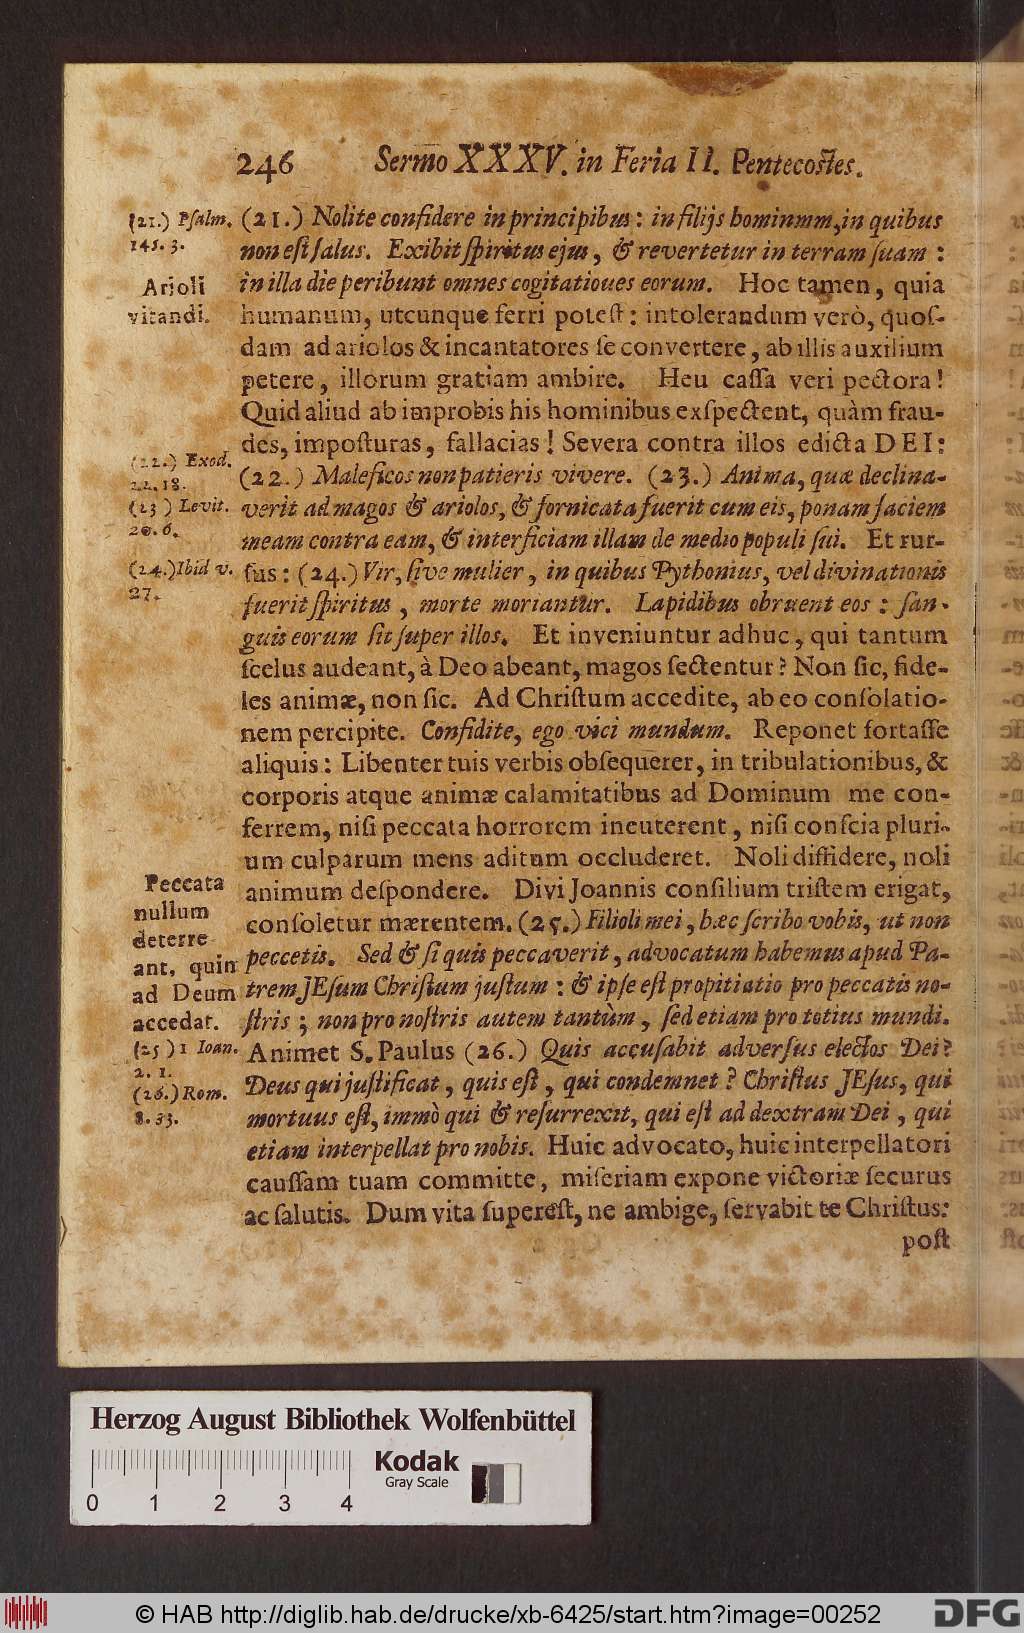 246 Sermo XXXV. in Feria II. Pentecostes.
(21.) Psalm.
145. 3.
Arioli
vitandi.
(22.) Exod.
22. 18.
(23) Levit.
20. 6.
(24.) Ibid v.
27.
Peccata
nullum
deterre
ant, quin
ad Deum
accedat.
(25) 1 Ioan.
2. 1.
(26.) Rom.
8. 33.
(21.) Nolite confidere in principibus: in filijs hominmm, in quibus
non est salus. Exibit spiritus ejus, & revertetur in terram suam:
in illa die peribunt omnes cogitatioues eorum. Hoc tamen, quia
humanum, utcunque ferri potest: intolerandum verò, quos-
dam ad ariolos & incantatores se convertere, ab illis auxilium
petere, illorum gratiam ambire. Heu cassa veri pectora!
Quid aliud ab improbis his hominibus exspectent, quàm frau-
des, imposturas, fallacias! Severa contra illos edicta DEI:
(22.) Maleficos non patieris vivere. (23.) Anima, quæ declina-
verit ad magos & ariolos, & fornicata fuerit cum eis, ponam faciem
meam contra eam, & interficiam illam de medio populi sui. Et rur-
sus: (24.) Vir, sive mulier, in quibus Pythonius, vel divinationis
fuerit spiritus, morte moriantur. Lapidibus obruent eos: san-
guis eorum sit super illos. Et inveniuntur adhuc, qui tantum
scelus audeant, à Deo abeant, magos sectentur? Non sic, fide-
les animæ, non sic. Ad Christum accedite, ab eo consolatio-
nem percipite. Confidite, ego vici mundum. Reponet fortasse
aliquis: Libenter tuis verbis obsequerer, in tribulationibus, &
corporis atque animæ calamitatibus ad Dominum me con-
ferrem, nisi peccata horrorem incuterent, nisi conscia pluri-
um culparum mens aditum occluderet. Noli diffidere, noli
animum despondere. Divi Joannis consilium tristem erigat,
consoletur mærentem. (25.) Filioli mei, hæc scribo vobis, ut non
peccetis. Sed & si quis peccaverit, advocatum habemus apud Pa-
trem JEsum Christum justum: & ipse est propitiatio pro peccatis no-
stris; non pro nostris autem tantùm, sed etiam pro totius mundi.
Animet S. Paulus (26.) Quis accusabit adversus electos Dei?
Deus qui justificat, quis est, qui condemnet? Christus JEsus, qui
mortuus est, immò qui & resurrexit, qui est ad dextram Dei, qui
etiam interpellat pro nobis. Huic advocato, huic interpellatori
caussam tuam committe, miseriam expone victoriæ securus
ac salutis. Dum vita superest, ne ambige, servabit te Christus:
post
Herzog August Bibliothek Wolfenbüttel
Kodak
Gray Scale
0 1 2 3 4
© HAB http://diglib.hab.de/drucke/xb-6425/start.htm?image=00252
DFG